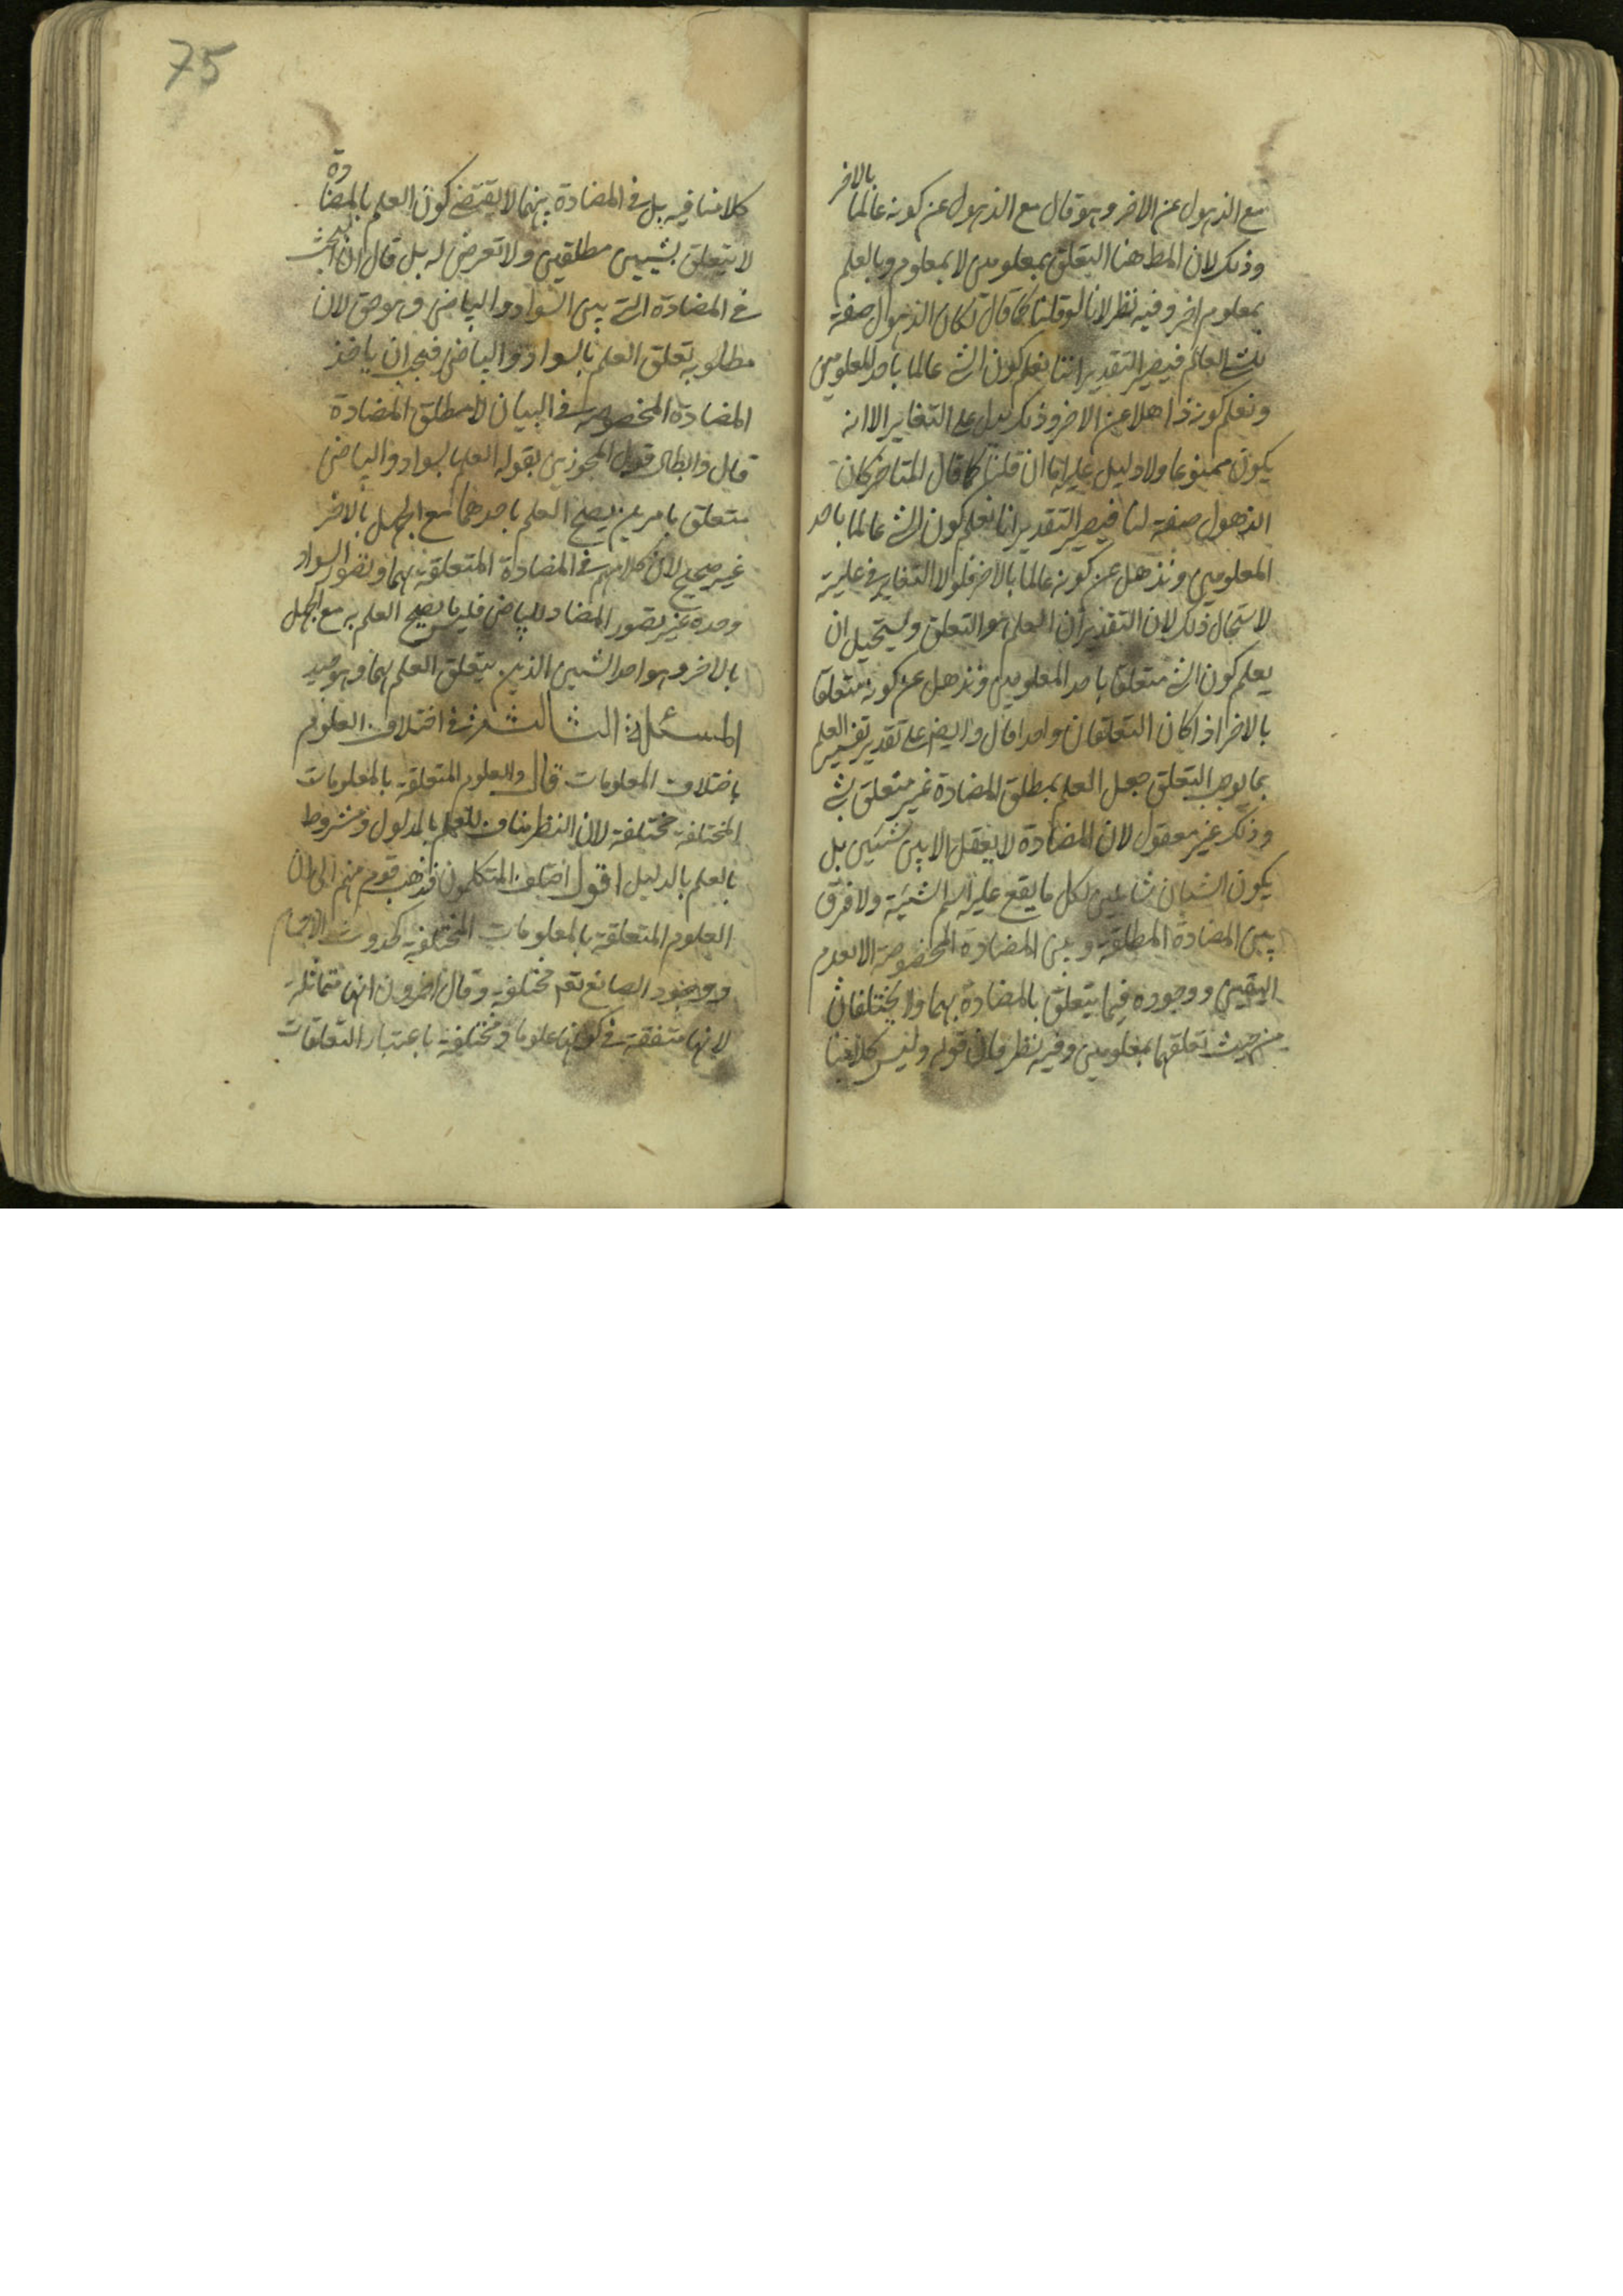 مع الذهول عن الاخر وهو قال مع الذهول عن كونه عالما بالاخر
وذلك لان المط هنا التعلق بمعلومين لا بمعلوم وبالعلم
بمعلوم اخر وفيه نظر لانا لو قلنا كما قال لكان الذهول صفة
للشي العالم فيصير التقدير اننا نعلم كون الشي عالما باحد المعلومين
ونعلم كونه ذاهلا عن الاخر وذلك يدل على التغاير الا انه
يكون ممنوعا ولا دليل عليه اما ان قلنا كما قال المتاخر كان
الذهول صفة لنا فيصير التقدير انا نعلم كون الشي عالما باحد
المعلومين ونذهل عن كونه عالما بالاخر فلولا التغاير في
لاستحال ذلك لان التقدير ان العلم هو التعلق ويستحيل ان
يعلم كون الشي متعلقا باحد المعلومين ونذهل عن كونه متعلقا
بالاخر اذا كان التعلقان واحدا قال وايضا على تقدير تفسير العلم
بما يوجب التعلق جعل العلم بمطلق المضادة غير متعلق بشي
وذلك غير معقول لان المضادة لا يعقل الا بين شيئين بل
يكون الشيئان شاملين لكل ما يقع عليه اسم الشيئية ولا فرق
بين المضادة المطلقة وبين المضادة المخصوصة الا بعدم
اليقين ووجوده فيما يتعلق بالمضادة بهما ولا يختلفان
من حيث تعلقهما بمعلومين وفيه نظر فان قوله وليس كلامنا
75
كلامنا فيه بل في المضادة بينهما لا يقتضي كون العلم بالمضادة
لا يتعلق بشيئين مطلقين ولا تعرض له بل قال ان البحث
في المضادة التي بين السواد والبياض وهو حق لان
مطلوبه تعلق العلم بالسواد والبياض فيجب ان ياخذ
المضادة المخصوصة في البيان لا مطلق المضادة
قال وابطال قول المجوزين بقوله العلم بالسواد والبياض
متعلق بامرين يصح العلم باحدهما مع الجهل بالاخر
غير صحيح لان كلامهم في المضادة المتعلقة بهما وتصور السواد
وحده غير تصور المضاد للبياض فليس ما يصح العلم به مع الجهل
بالاخر وهو احد الشيئين الذين يتعلق العلم بهما وهو جيد
المسئلة الثالثة في اختلاف العلوم
باختلاف المعلومات قال والعلوم المتعلقة بالمعلومات
المختلفة مختلفة لان النظر مناف للعلم بالمدلول ومشروط
بالعلم بالدليل اقول اختلف المتكلمون فذهب قوم منهم الى ان
العلوم المتعلقة بالمعلومات المختلفة كحدوث الاجسام
ووجود الصانع تعم مختلفة وقال اخرون انها متماثلة
لانها متفقة في كونها علوما ومختلفة باعتبار التعلقات